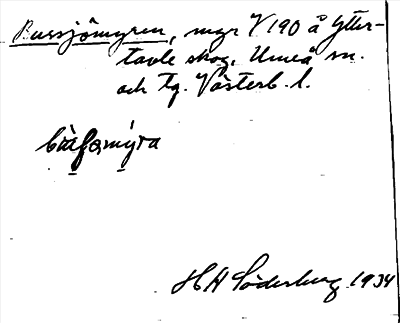 Bussjömyren, myr V 190 å Ytter-
tavle skog, Umeå sn.
och tg. Västerb. l.
H H Söderberg 1934